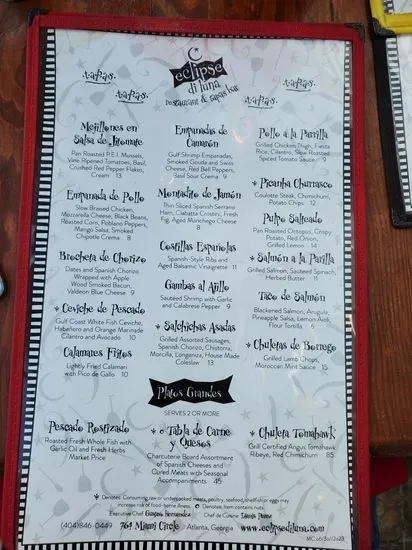 eclipse
di luna
restaurant & tapas bar
tapas
tapas
tapas
tapas
Mejillones en
Salsa de Jitomate
Pan Roasted P.E.I. Mussels,
Vine Ripened Tomatoes, Basil,
Crushed Red Pepper Flakes,
Cream 13
Empanada de Pollo
Slow Braised Chicken,
Mozzarella Cheese, Black Beans,
Roasted Corn, Poblano Peppers,
Mango Salsa, Smoked
Chipotle Crema 8
Brocheta de Chorizo
Dates and Spanish Chorizo
Wrapped with Apple
Wood Smoked Bacon,
Valdeon Blue Cheese 9
* Ceviche de Pescado
Gulf Coast White Fish Ceviche,
Habañero and Orange Marinade
Cilantro and Avocado 10
Calamares Fritos
Lightly Fried Calamari
with Pico de Gallo 10
Empanadas de
Camarón
Gulf Shrimp Empanadas,
Smoked Gouda and Swiss
Cheese, Red Bell Peppers,
Basil Sour Crema 9
Montadito de Jamón
Thin Sliced Spanish Serrano
Ham, Ciabatta Crostini, Fresh
Fig, Aged Manchego Cheese
8
Costillas Españolas
Spanish-Style Ribs and
Aged Balsamic Vinaigrette 11
Gambas al Ajillo
Sautéed Shrimp with Garlic
and Calabrese Pepper 9
* Salchichas Asadas
Grilled Assorted Sausages,
Spanish Chorizo, Chistorra,
Morcilla, Longaniza, House Made
Coleslaw 13
Pollo a la Parrilla
Grilled Chicken Thigh, Fiesta
Rice, Cilantro, Slow Roasted
Spiced Tomato Sauce 9
* Picanha Churrasco
Coulotte Steak, Chimichurri,
Potato Chips 12
Pulpo Salteado
Pan Roasted Octopus, Crispy
Potato, Red Onion,
Grilled Lemon 14
* Salmón a la Parrilla
Grilled Salmon, Sauteed Spinach,
Herbed Butter 11
Taco de Salmón
Blackened Salmon, Arugula,
Pineapple Salsa, Lemon Aioli,
Flour Tortilla 6
* Chuletas de Borrego
Grilled Lamb Chops,
Moroccan Mint Sauce 15
Platos Grandes
SERVES 2 OR MORE
Pescado Rostizado
Roasted Fresh Whole Fish with
Garlic Oil and Fresh Herbs
Market Price
* Tabla de Carne
y Quesos
Charcuterie Board Assortment
of Spanish Cheeses and
Cured Meats with Seasonal
Accompaniments 45
* Chuleta Tomahawk
Grill Certified Angus Tomahawk
Ribeye, Red Chimichurri 85
* Denotes: Consuming raw or undercooked meats, poultry, seafood, shellfish or eggs may
increase risk of food-borne illness.
Executive Chef
Chef de Cuisine
(404)846-0449 764 Miami Circle Atlanta, Georgia www.eclipsediluna.com